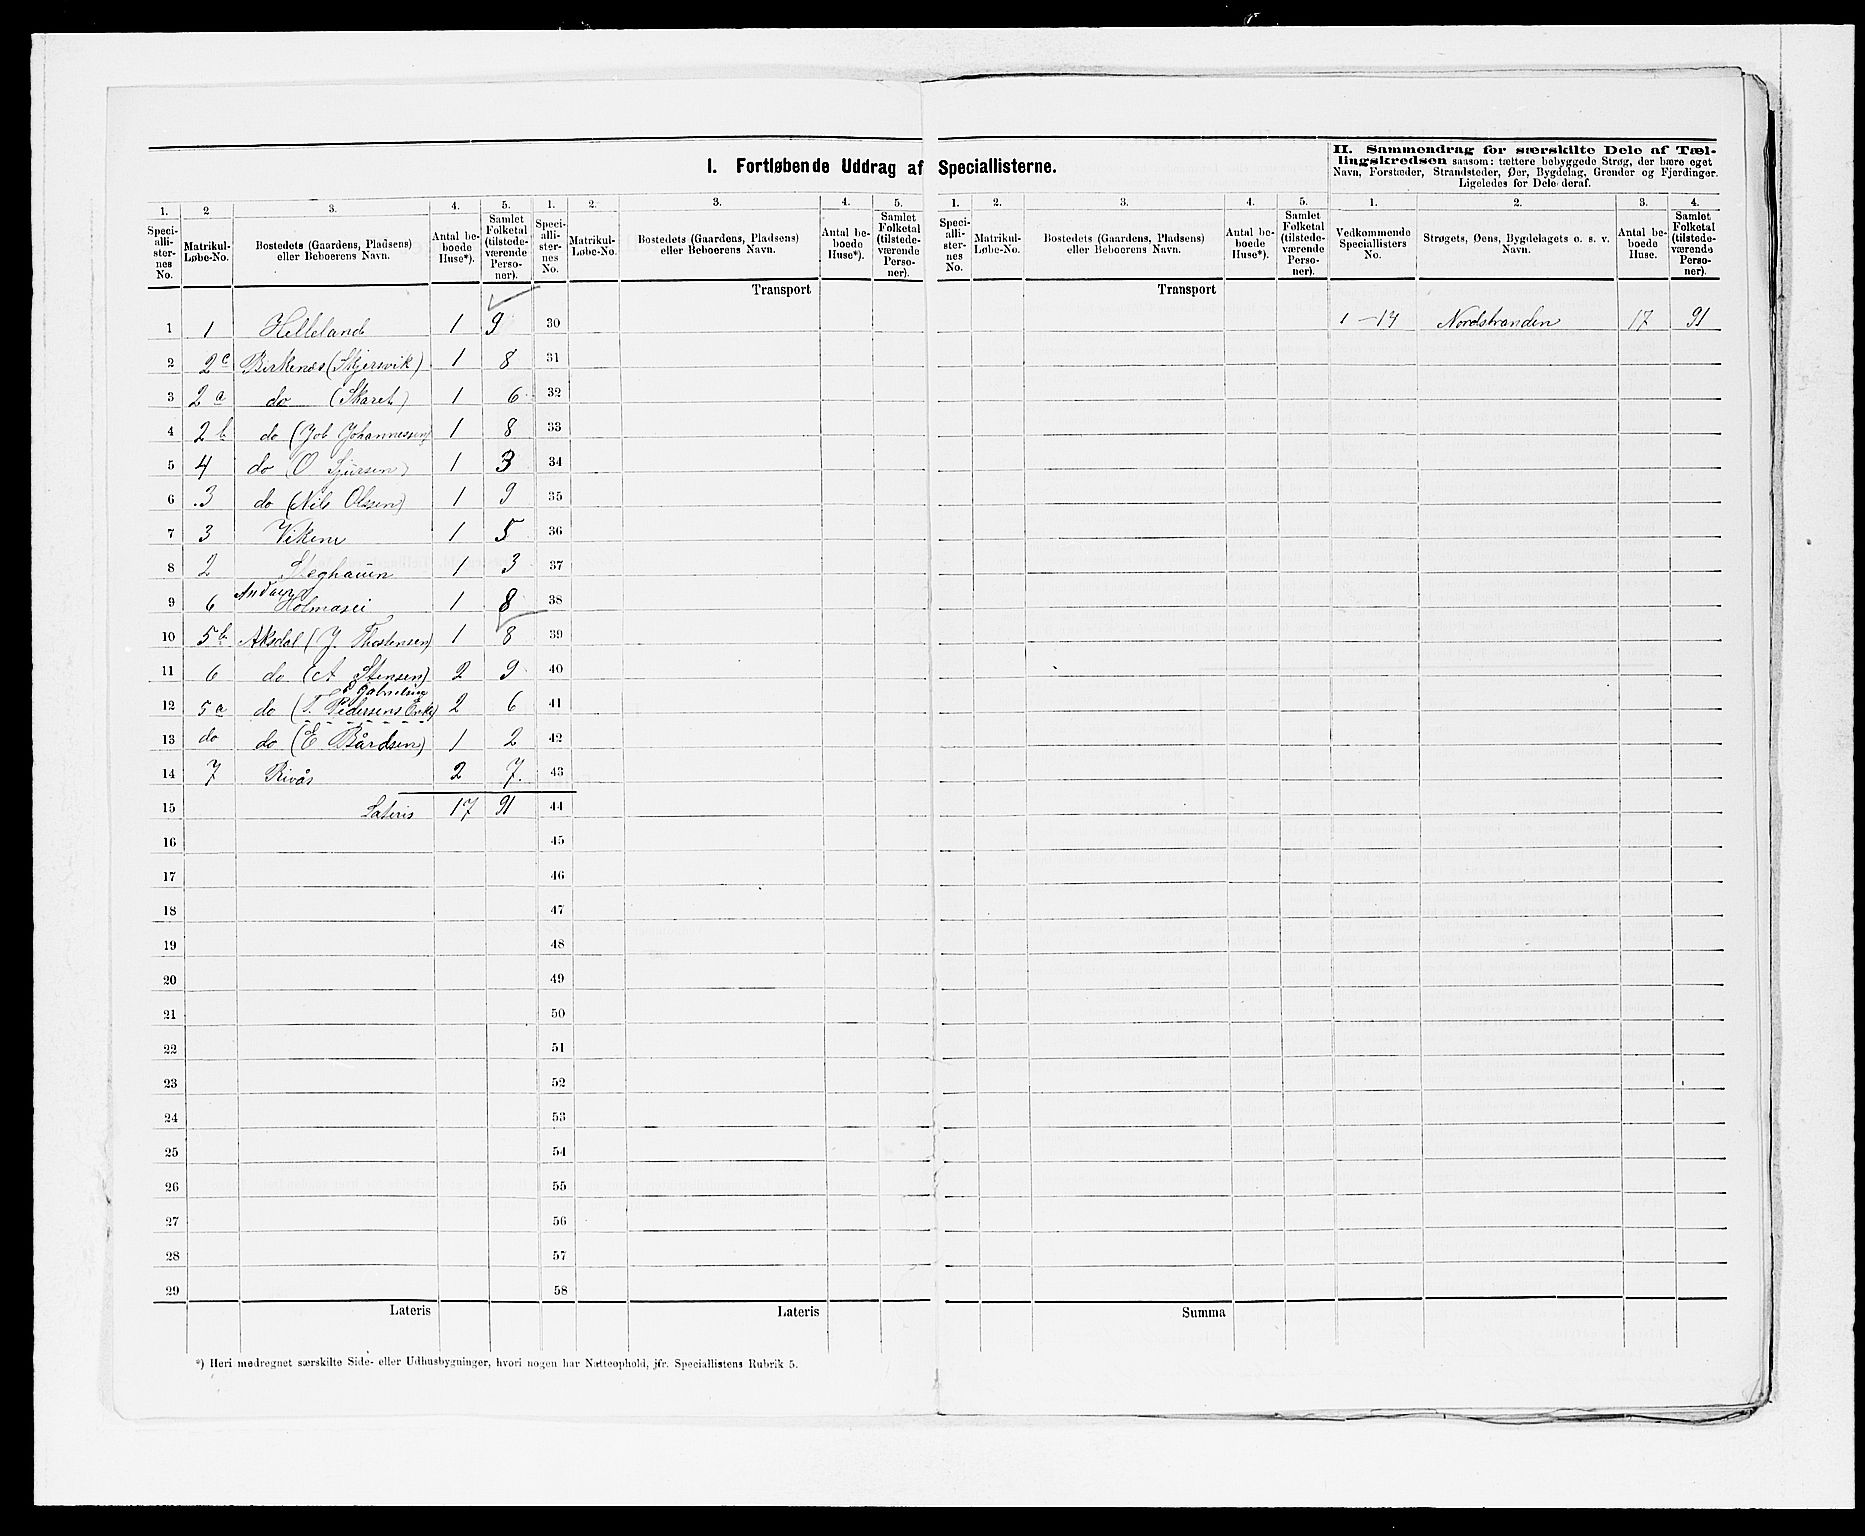 I. Fortløbende Uddrag af Speciallisterne.
II. Sammendrag for særskilte Dele af Tællingskredsen saasom: tættere bebyggede Strøg, der bære eget
Navn, Forstæder, Strandsteder, Øer, Bygdelag, Grender og Fjerdinger.
Ligeledes for Dele deraf.
1. 2 3. 4. 5. 1. 2. 3. 4. 5. 1. 2. 3. 4. 5. 1. 2. 3. 4.
Speciallisternes No. Matrikul-Løbe-No. Bostedets (Gaardens, Pladsens) eller Beboerens Navn. Antal beboede Huse*). Samlet Folketal (tilstedeværende Personer).
Speciallisternes No. Matrikul-Løbe-No. Bostedets (Gaardens, Pladsens) eller Beboerens Navn. Antal beboede Huse*). Samlet Folketal (tilstedeværende Personer).
Speciallisternes No. Matrikul-Løbe-No. Bostedets (Gaardens, Pladsens) eller Beboerens Navn. Antal beboede Huse*). Samlet Folketal (tilstedeværende Personer).
Vedkommende Speciallisters No. Strøgets, Øens, Bygdelagets o. s. v. Navn. Antal beboede Huse. Samlet Folketal (tilstedeværende Personer).
Transport Transport
1 1 Helleland 1 9 30 1-14 Nordstranden 17 91
2 2c Birkenes (Skjersvik) 1 8 31
3 2a do (Skaret) 1 6 32
4 2b do (Job Johannessen) 1 8 33
5 4 do (O Sjursen) 1 3 34
6 3 do (Nils Olssen) 1 9 35
7 3 Vikene 1 5 36
8 2 1 3 37
9 6 Holmasei 1 8 38
10 5b Aksdal (J. Thorstensen) 1 8 39
11 6 do (A Stensen) 2 9 40
12 5a do (T. Pedersens Enke) 2 6 41
13 do do (E Bårdsen) 1 2 42
14 7 Rivås 2 7. 43
15 Lateris 17 91 44
16 45
17 46
18 47
19 48
20 49
21 50
22 51
23 52
24 53
25 54
26 55
27 56
28 57
29 58
Lateris Lateris Summa
*) Heri medregnet særskilte Side- eller Udhusbygninger, hvori nogen har Natteophold, jfr. Speciallistens Rubrik 5.